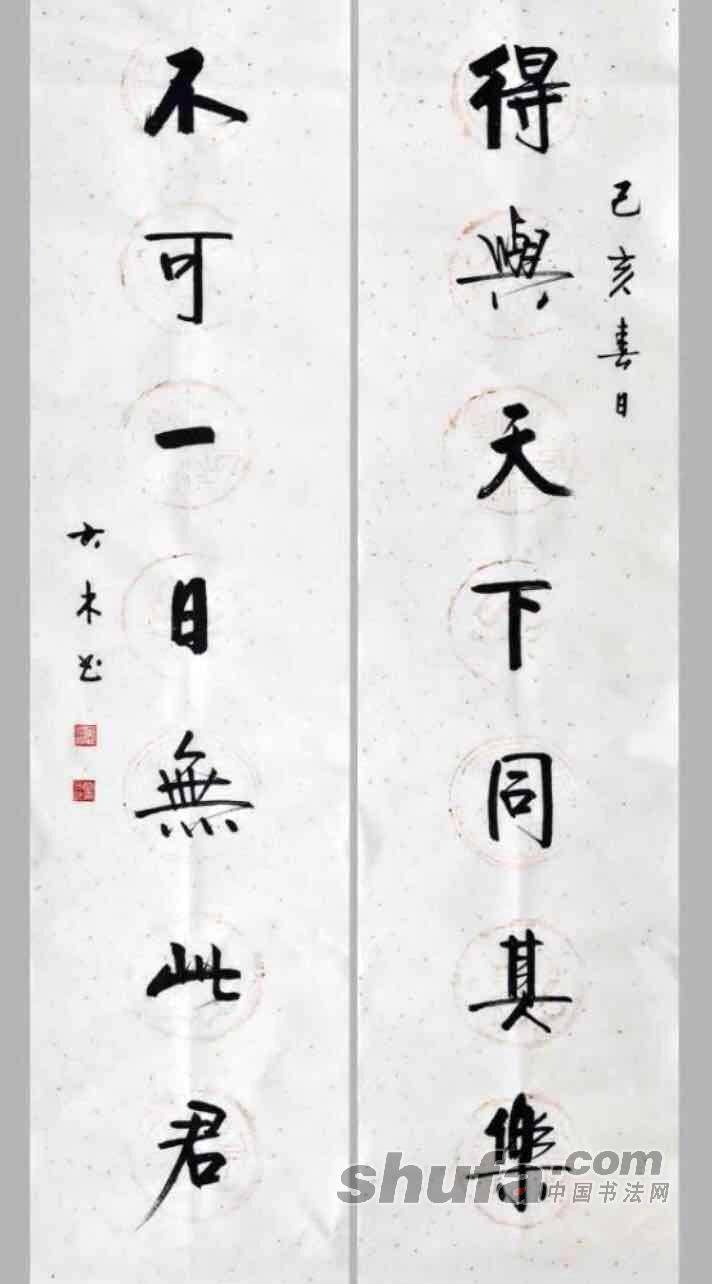 己亥春日
得與天下同其樂
不可一日無此君
木书
shufa.com
中国书法网